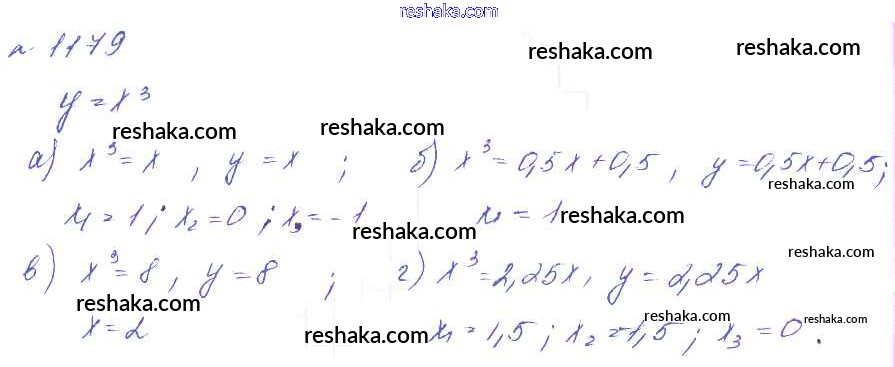 reshaka.com
№ 1179
reshaka.com reshaka.com
y = x³
reshaka.com reshaka.com
а) x³ = x , y = x ; б) x³ = 0,5x + 0,5 , y = 0,5x + 0,5 ;
reshaka.com
x₁ = 1 ; x₂ = 0 ; x₃ = -1 x₁ = 1
reshaka.com reshaka.com
reshaka.com
в) x³ = 8 , y = 8 ; г) x³ = 2,25x , y = 2,25x
reshaka.com reshaka.com reshaka.com
x = 2 x₁ = 1,5 ; x₂ = -1,5 ; x₃ = 0 .
reshaka.com